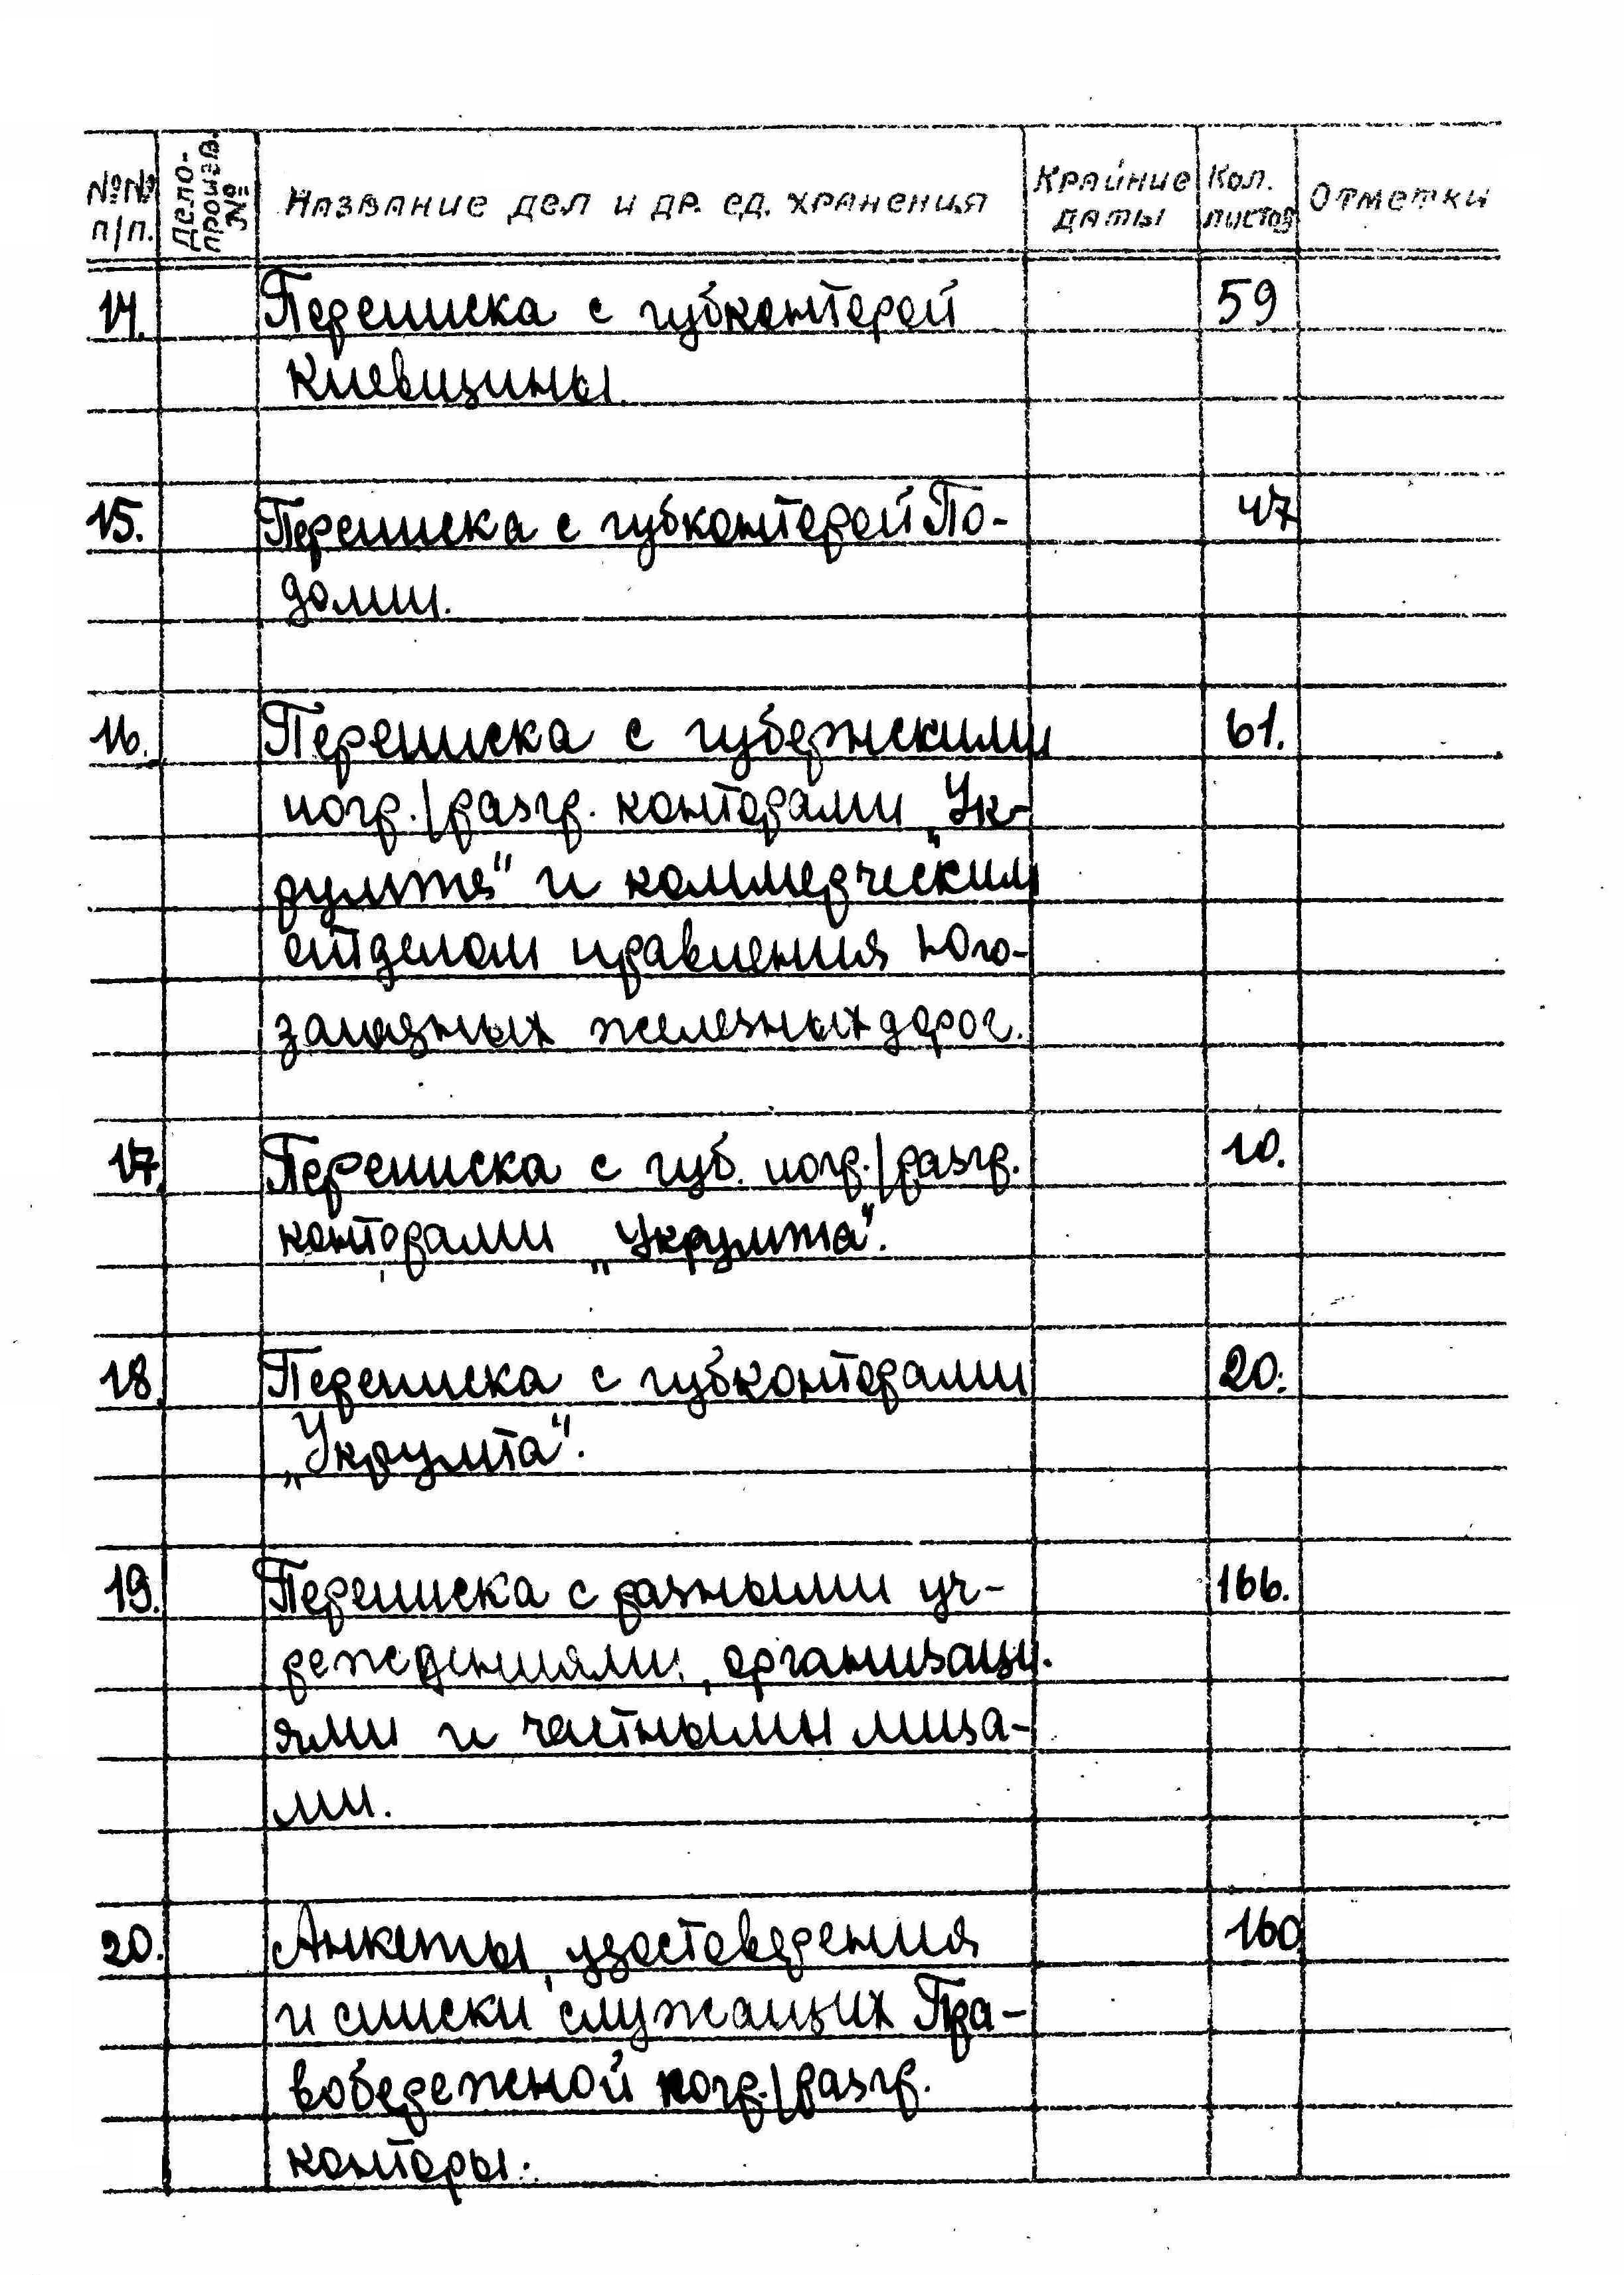 №№ п/п. Делопроизв. № Название дел и др. ед. хранения Крайние даты Кол. листов Отметки
14. Переписка с губконторой 59
Киевщины.
15. Переписка с губконторой По- 47
долии.
16. Переписка с губернскими 61.
погр./разгр. конторами „Ук-
румта" и коммерческим
отделом правления Юго-
западных железных дорог.
17. Переписка с губ. погр./разгр. 10.
конторами „Укрумта".
18. Переписка с губконторами 20.
„Укрумта".
19. Переписка с разными уч- 166.
реждениями, организаци-
ями и частными лица-
ми.
20. Анкеты, удостоверения 160
и списки служащих Пра-
вобережной погр./разгр.
конторы.